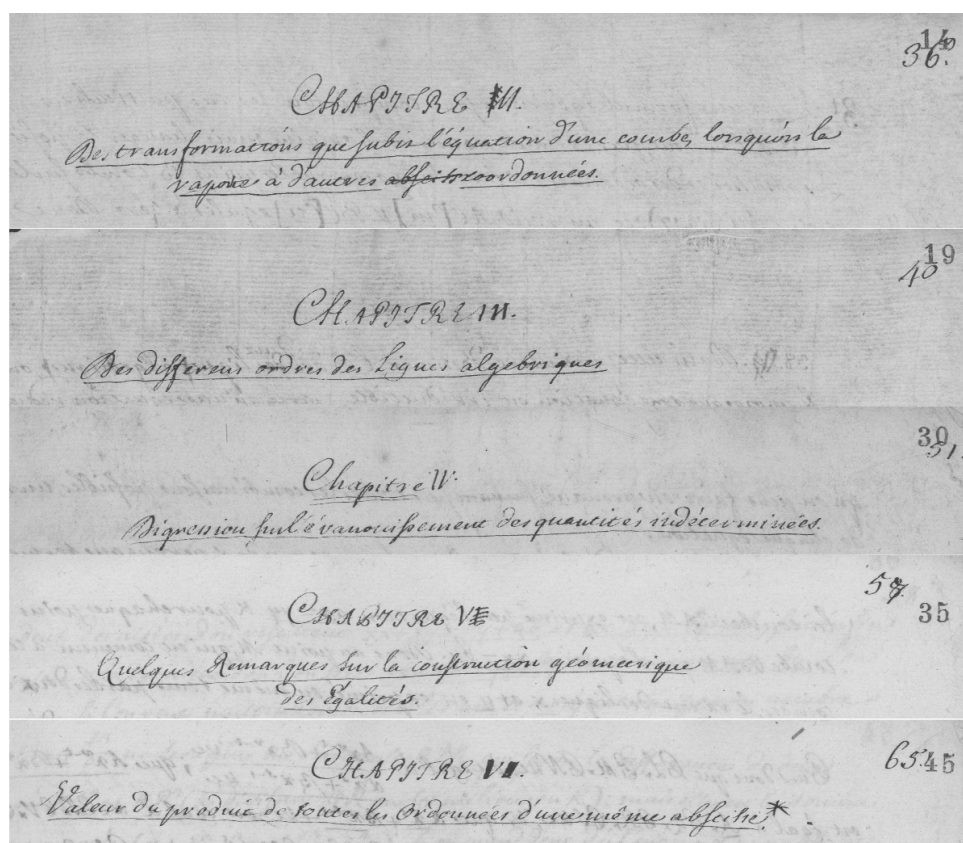 14
36.
CHAPITRE II.
Des transformations que subit l'équation d'une courbe, lorsqu'on la
raporte à d'autres abscisses coordonnées.
19
40
CHAPITRE III.
Des differens ordres des Lignes algebriques
30
51.
Chapitre IV.
Digression sur l'évanouissement des quantités indéterminées.
57
35
CHAPITRE V
Quelques Remarques sur la construction géometrique
des Égalités.
65.
45
CHAPITRE VI.
Valeur du produit de toutes les Ordonnées d'une même abscisse.*